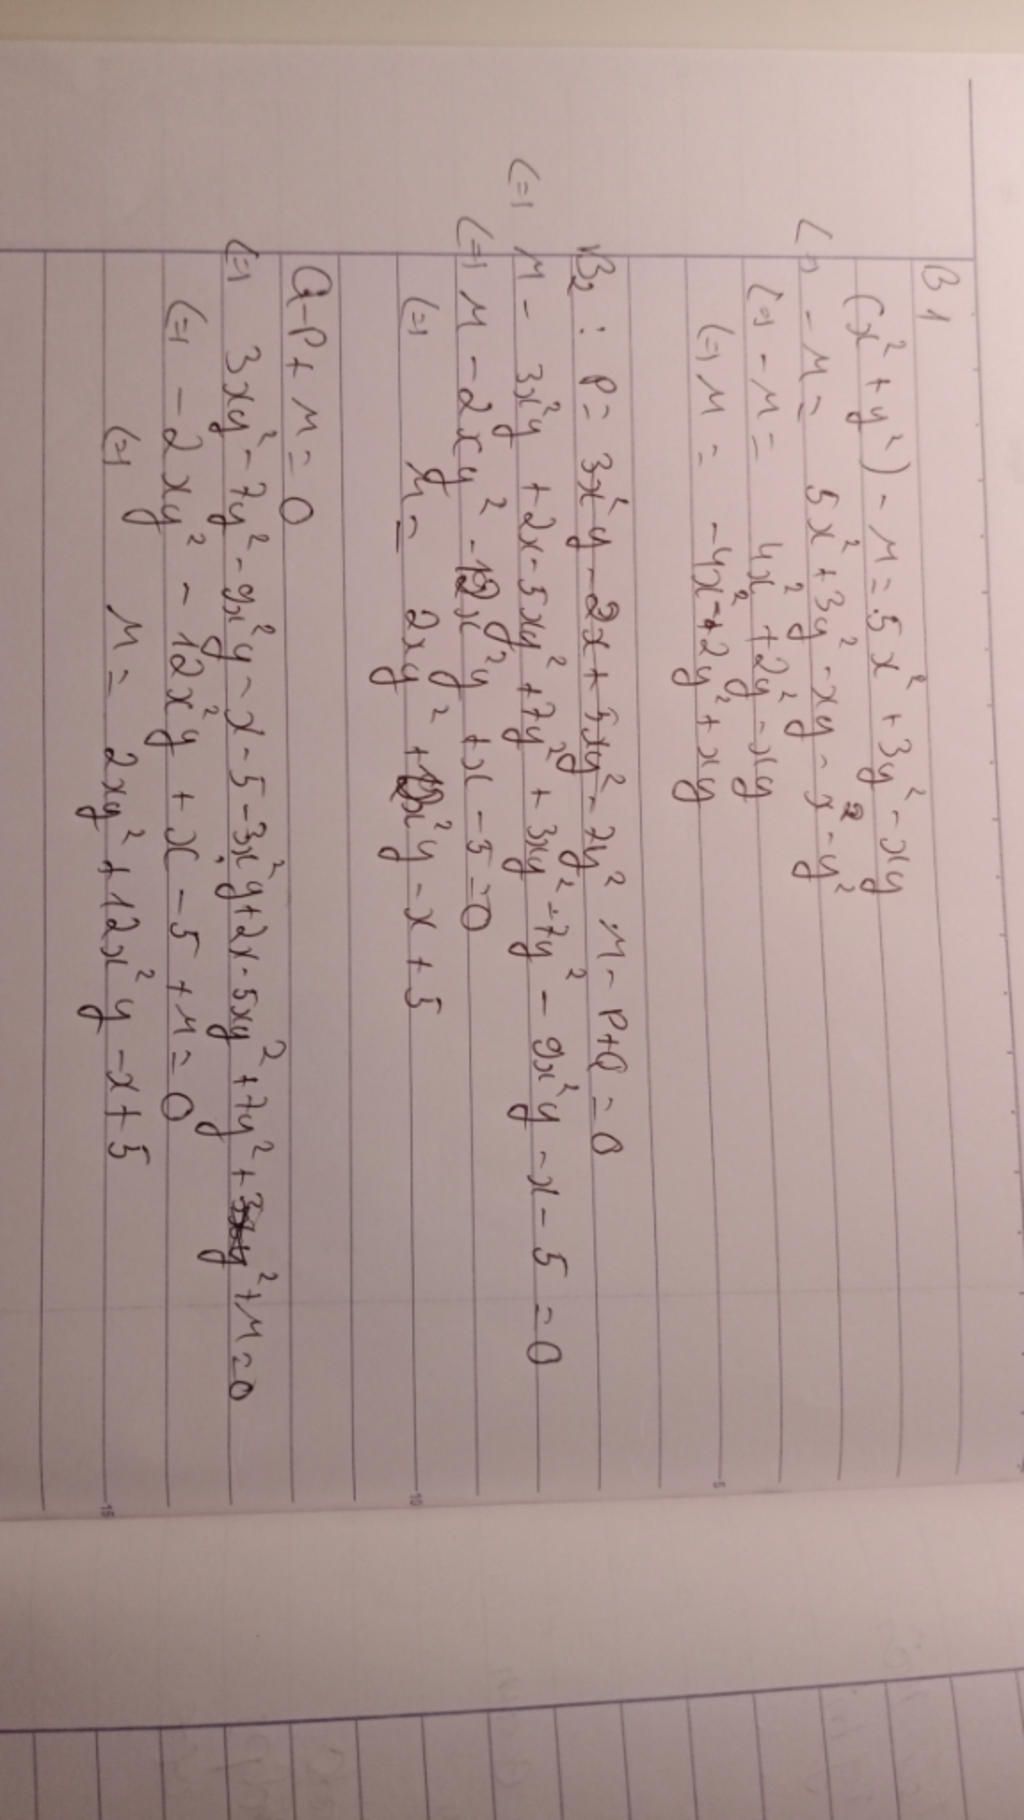 B1
(x² + y²) - M = 5x² + 3y² - xy
(=) - M = 5x² + 3y² - xy - x² - y²
(=) - M = 4x² + 2y² - xy
(=) M = -4x² + 2y² + xy
B2 : P = 3x²y - 2x + 5xy² - 7y² M - P + Q = 0
(=) M - 3x²y + 2x - 5xy² + 7y² + 3xy² - 7y² - 9x²y - x - 5 = 0
(=) M - 2xy² - 12x²y + x - 5 = 0
(=) M = 2xy² + 12x²y - x + 5
Q - P + M = 0
(=) 3xy² - 7y² - 9x²y - x - 5 - 3x²y + 2x - 5xy² + 7y² + M = 0
(=) - 2xy² - 12x²y + x - 5 + M = 0
(=) M = 2xy² + 12x²y - x + 5
5
10
15